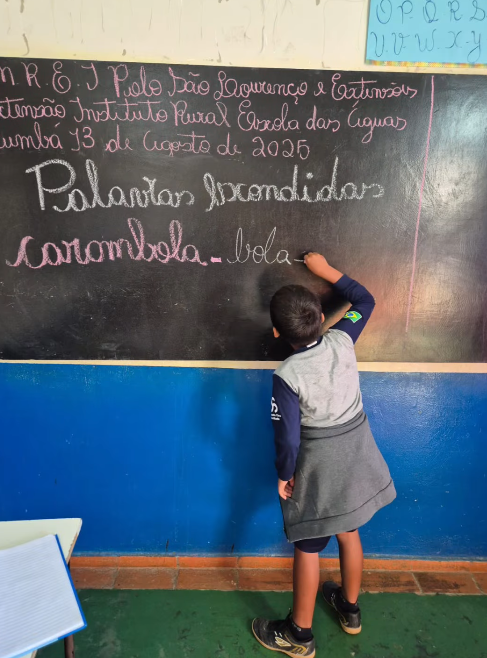 M.R.E.I Polo São Lourenço e Extensões
xtensão Instituto Rural Escola das Águas
umbá 13 de Agosto de 2025
Palavras Escondidas
carambola - bola -
O P Q R S
U V W X Y